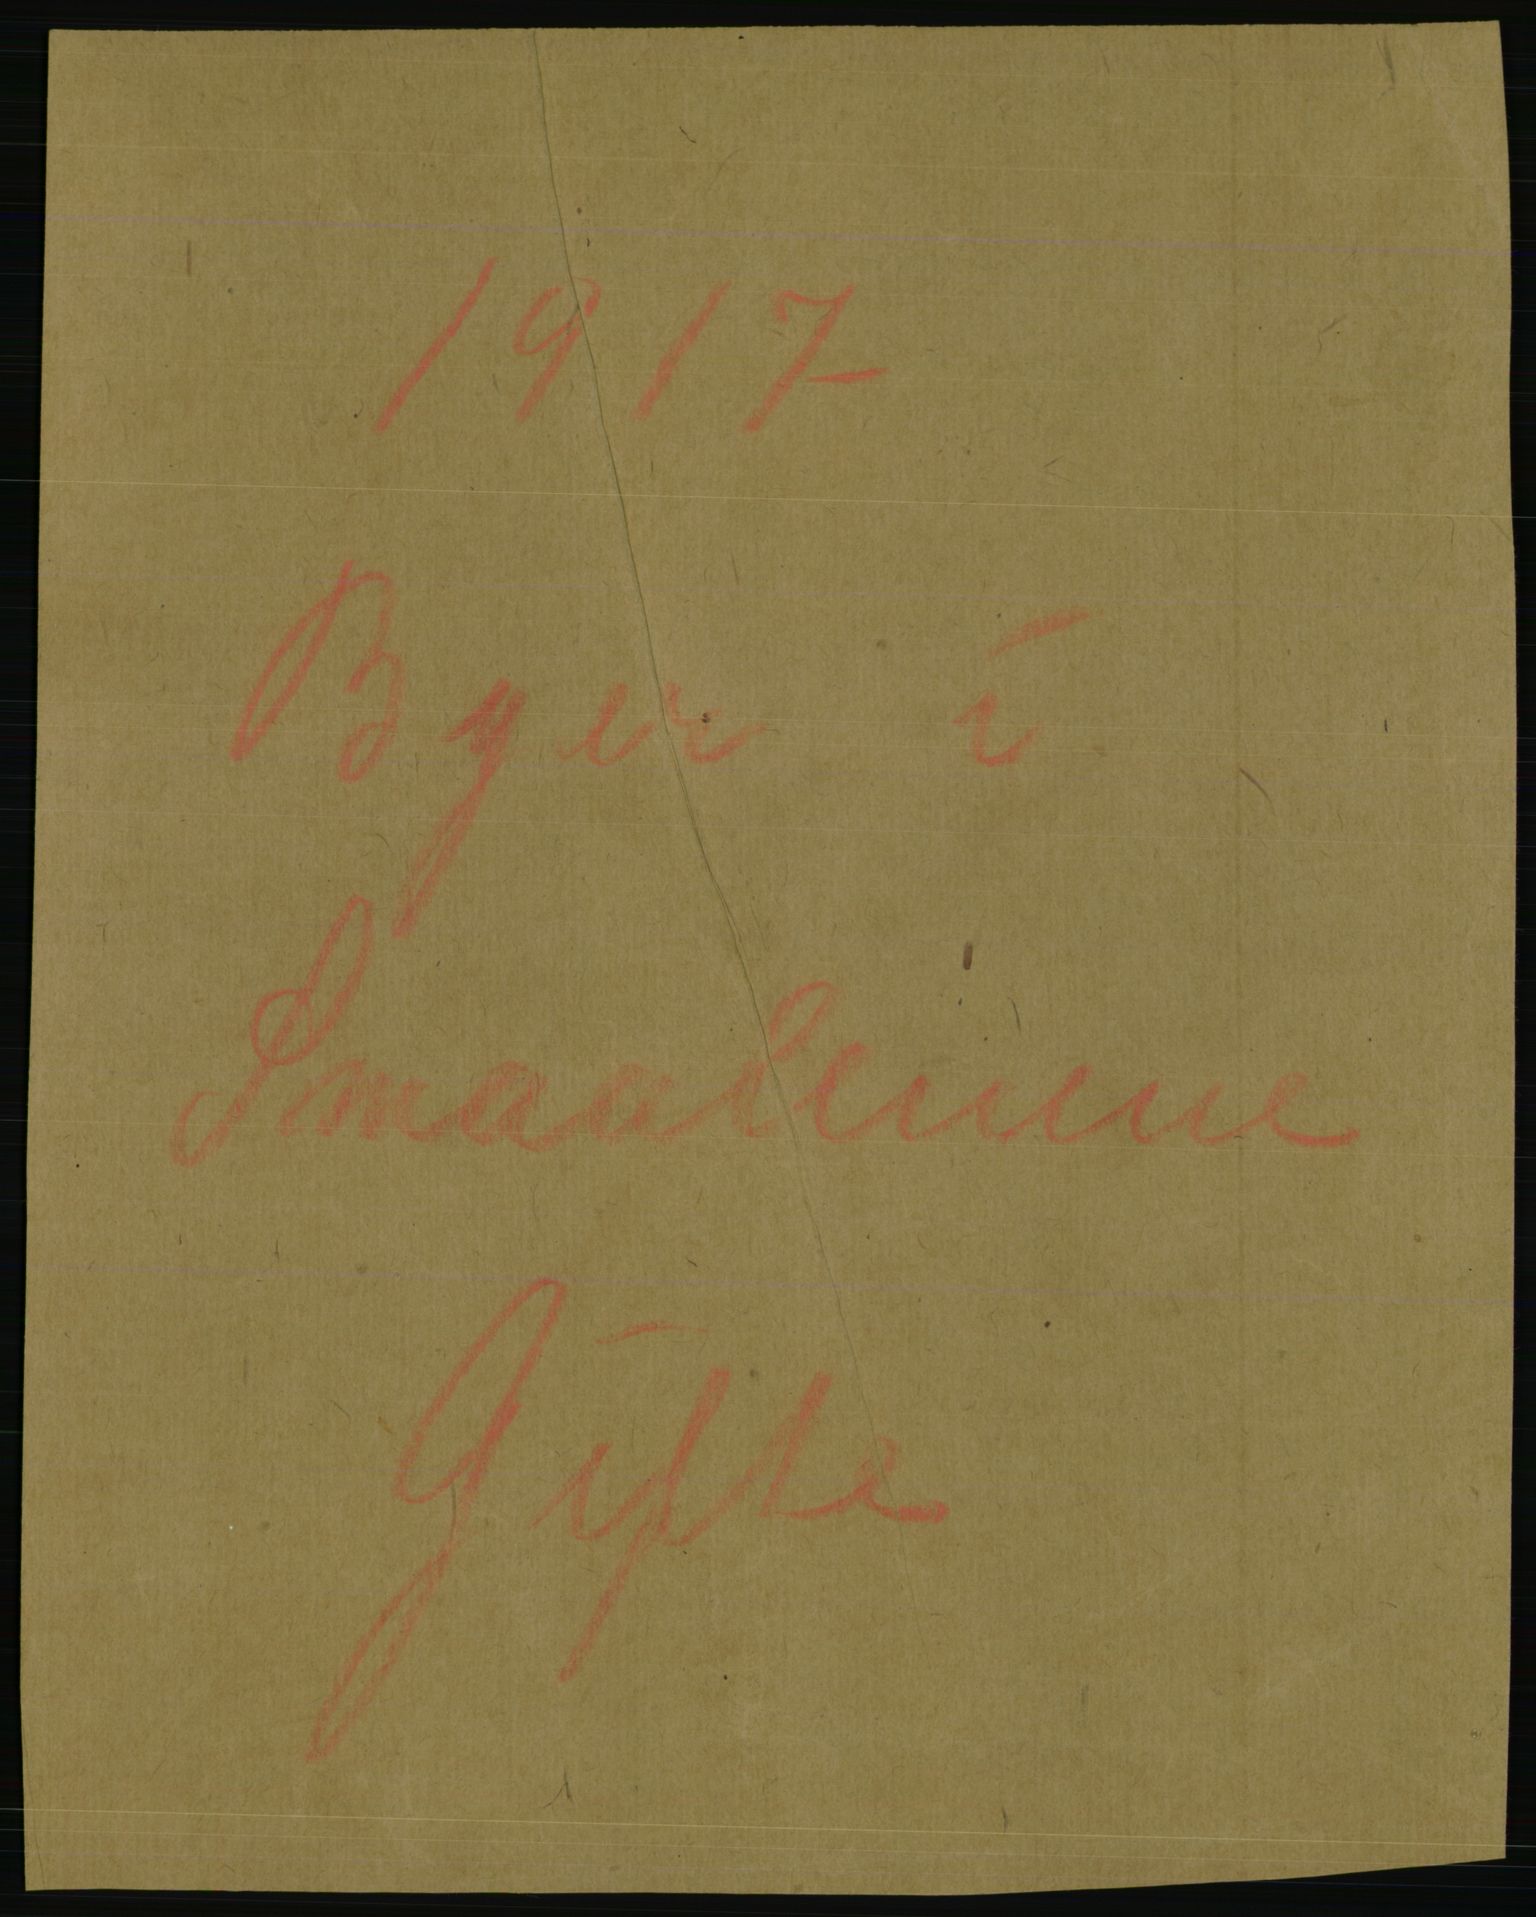 1917
Byer i
Smaalenene
Gifte